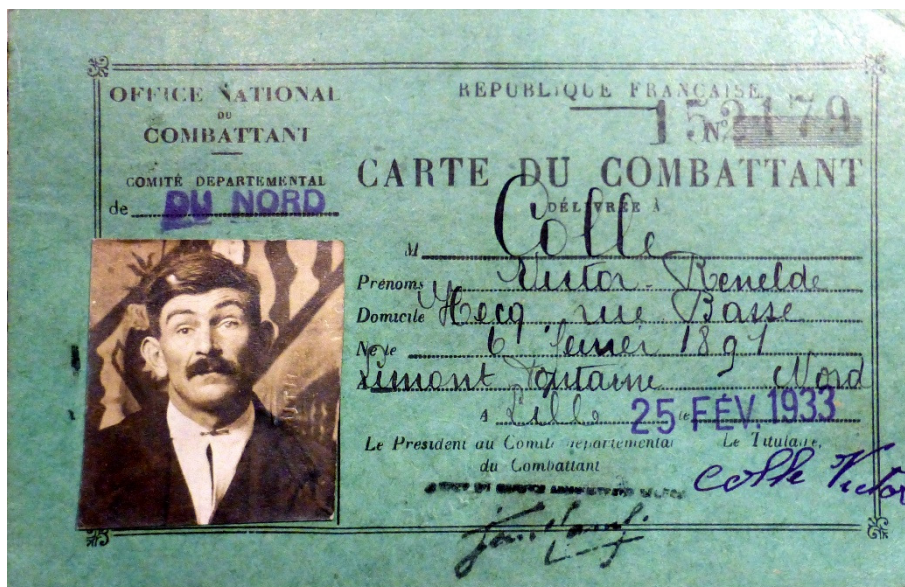 OFFICE NATIONAL
DU
COMBATTANT
COMITÉ DEPARTEMENTAL
de DU NORD
RÉPUBLIQUE FRANÇAISE
Nº 152179
CARTE DU COMBATTANT
DÉLIVRÉE À
M Colle
Prénoms Victor Renelde
Domicile Hecq, rue Basse
Né le 6 1891
Limont Fontaine Nord
A Lille le 25 FÉV. 1933
Le President du Comité departemental
du Combattant
Le Titulaire,
Colle Victor